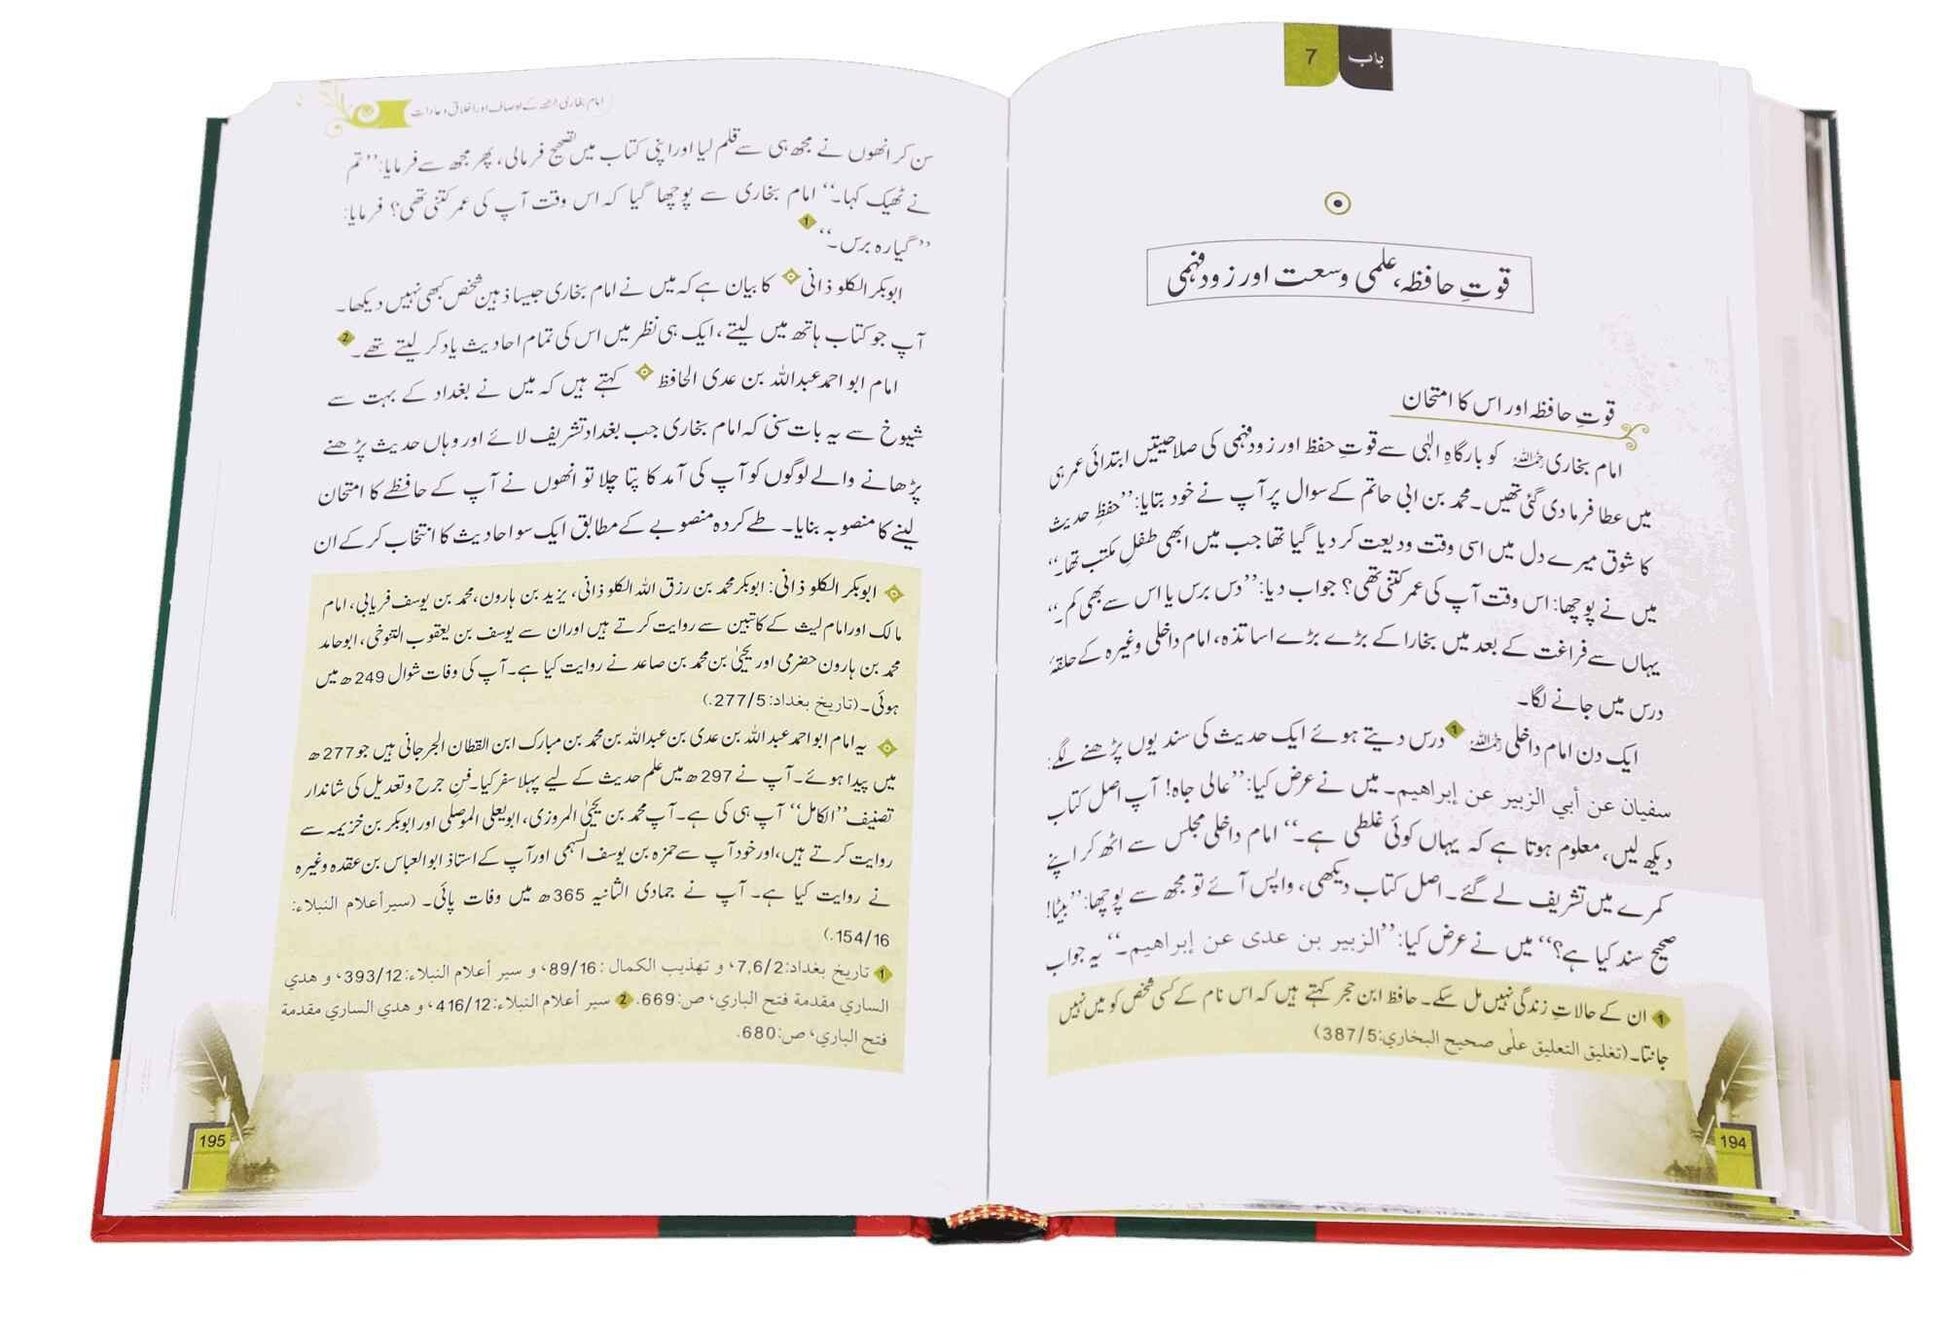 باب 7
قوتِ حافظہ، علمی وسعت اور زود فہمی
قوتِ حافظہ اور اس کا امتحان
امام بخاری رحمہ اللہ کو بارگاہِ الٰہی سے قوتِ حفظ اور زود فہمی کی صلاحیتیں ابتدائی عمر ہی
میں عطا فرما دی گئی تھیں۔ محمد بن ابی حاتم کے سوال پر آپ نے خود بتایا: ’’حفظِ حدیث
کا شوق میرے دل میں اسی وقت ودیعت کر دیا گیا تھا جب میں ابھی طفلِ مکتب تھا۔‘‘
میں نے پوچھا: اس وقت آپ کی عمر کتنی تھی؟ جواب دیا: ’’دس برس یا اس سے بھی کم۔‘‘
یہاں سے فراغت کے بعد میں بخارا کے بڑے بڑے اساتذہ، امام داخلی وغیرہ کے حلقۂ
درس میں جانے لگا۔
ایک دن امام داخلی رحمہ اللہ 1 درس دیتے ہوئے ایک حدیث کی سند یوں پڑھنے لگے:
سفیان عن أبي الزبیر عن إبراهیم۔ میں نے عرض کیا: ’’عالی جاہ! آپ اصل کتاب
دیکھ لیں، معلوم ہوتا ہے کہ یہاں کوئی غلطی ہے۔‘‘ امام داخلی مجلس سے اٹھ کر اپنے
کمرے میں تشریف لے گئے۔ اصل کتاب دیکھی، واپس آئے تو مجھ سے پوچھا: ’’بیٹا!
صحیح سند کیا ہے؟‘‘ میں نے عرض کیا: ’’الزبیر بن عدی عن إبراهیم۔‘‘ یہ جواب
1 ان کے حالاتِ زندگی نہیں مل سکے۔ حافظ ابن حجر کہتے ہیں کہ اس نام کے کسی شخص کو میں نہیں
جانتا۔ (تغلیق التعلیق علی صحیح البخاري: 387/5)
194
امام بخاری رحمہ اللہ کے اوصاف اور اخلاق و عادات
سن کر انھوں نے مجھ ہی سے قلم لیا اور اپنی کتاب میں تصحیح فرمالی، پھر مجھ سے فرمایا: ’’تم
نے ٹھیک کہا۔‘‘ امام بخاری سے پوچھا گیا کہ اس وقت آپ کی عمر کتنی تھی؟ فرمایا:
’’گیارہ برس۔‘‘ 1
ابوبکر الکلوذانی کا بیان ہے کہ میں نے امام بخاری جیسا ذہین شخص کبھی نہیں دیکھا۔
آپ جو کتاب ہاتھ میں لیتے، ایک ہی نظر میں اس کی تمام احادیث یاد کر لیتے تھے۔ 2
امام ابو احمد عبداللہ بن عدی الحافظ کہتے ہیں کہ میں نے بغداد کے بہت سے
شیوخ سے یہ بات سنی کہ امام بخاری جب بغداد تشریف لائے اور وہاں حدیث پڑھنے
پڑھانے والے لوگوں کو آپ کی آمد کا پتا چلا تو انھوں نے آپ کے حافظے کا امتحان
لینے کا منصوبہ بنایا۔ طے کردہ منصوبے کے مطابق ایک سو احادیث کا انتخاب کر کے ان
ابوبکر الکلوذانی: ابوبکر محمد بن رزق اللہ الکلوذانی، یزید بن ہارون، محمد بن یوسف فریابی، امام
مالک اور امام لیث کے کاتبین سے روایت کرتے ہیں اور ان سے یوسف بن یعقوب التنوخی، ابوحامد
محمد بن ہارون حضرمی اور یحییٰ بن محمد بن صاعد نے روایت کیا ہے۔ آپ کی وفات شوال 249ھ میں
ہوئی۔ (تاریخ بغداد: 277/5.)
یہ امام ابو احمد عبداللہ بن عدی بن عبداللہ بن محمد بن مبارک ابن القطان الجرجانی ہیں جو 277ھ
میں پیدا ہوئے۔ آپ نے 297ھ میں علم حدیث کے لیے پہلا سفر کیا۔ فنِ جرح و تعدیل کی شاندار
تصنیف ’’الکامل‘‘ آپ ہی کی ہے۔ آپ محمد بن یحییٰ المروزی، ابویعلی الموصلی اور ابوبکر بن خزیمہ سے
روایت کرتے ہیں، اور خود آپ سے حمزہ بن یوسف السہمی اور آپ کے استاذ ابوالعباس بن عقدہ وغیرہ
نے روایت کیا ہے۔ آپ نے جمادی الثانیہ 365ھ میں وفات پائی۔ (سیر أعلام النبلاء:
154/16.)
1 تاریخ بغداد: 7,6/2، و تهذیب الکمال: 89/16، و سیر أعلام النبلاء: 393/12، و هدي
الساري مقدمة فتح الباري، ص: 669. 2 سیر أعلام النبلاء: 416/12، و هدي الساري مقدمة
فتح الباري، ص: 680.
195